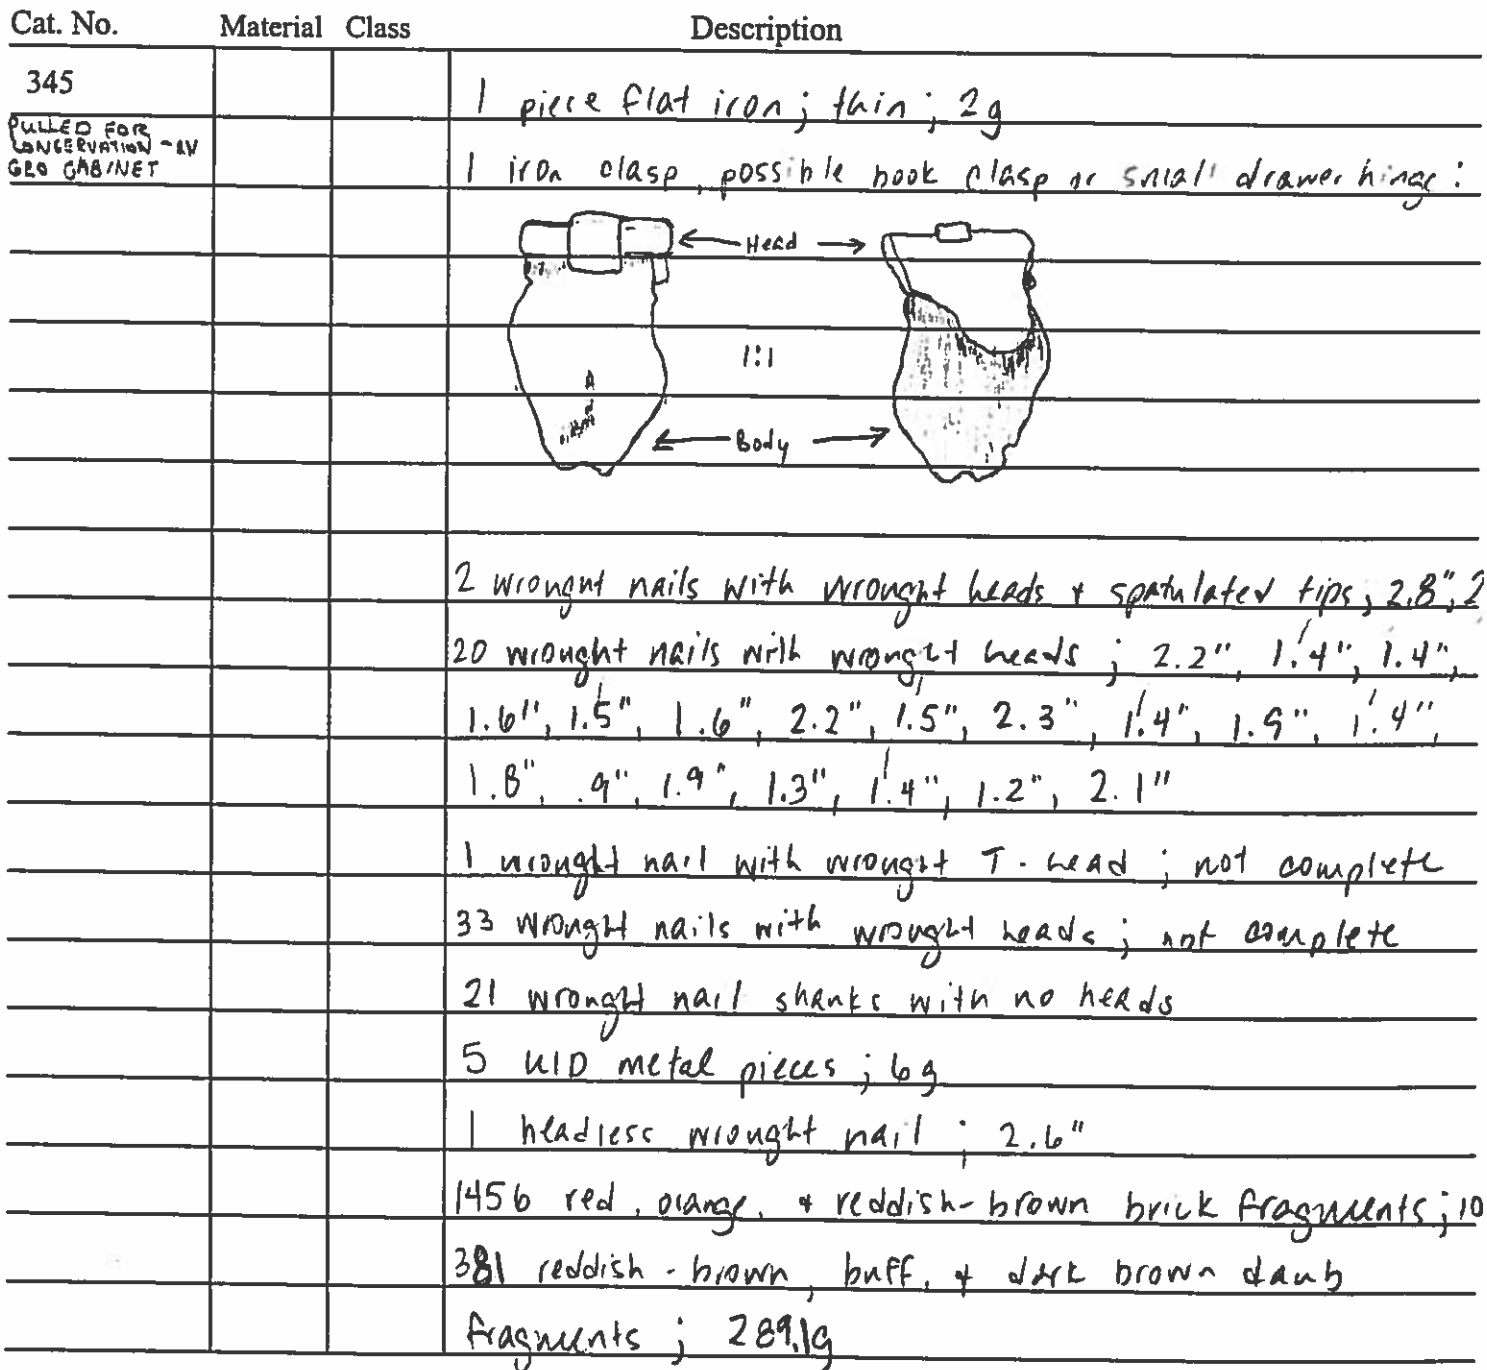 Cat. No. Material Class Description
345
1 piece flat iron; thin; 2g
PULLED FOR
CONSERVATION -
GEO CABINET
1 iron clasp, possible book clasp or small drawer hinge:
Head
1:1
Body
2 wrought nails with wrought heads + spatulated tips; 2.8", 2
20 wrought nails with wrought heads; 2.2", 1.4", 1.4",
1.6", 1.5", 1.6", 2.2", 1.5", 2.3", 1.4", 1.9", 1.4",
1.8", .9", 1.9", 1.3", 1.4", 1.2", 2.1"
1 wrought nail with wrought T-head; not complete
33 wrought nails with wrought heads; not complete
21 wrought nail shanks with no heads
5 UID metal pieces; 6g
1 headless wrought nail; 2.6"
1456 red, orange, + reddish-brown brick fragments; 10
381 reddish-brown, buff, + dark brown daub
fragments; 289.1g